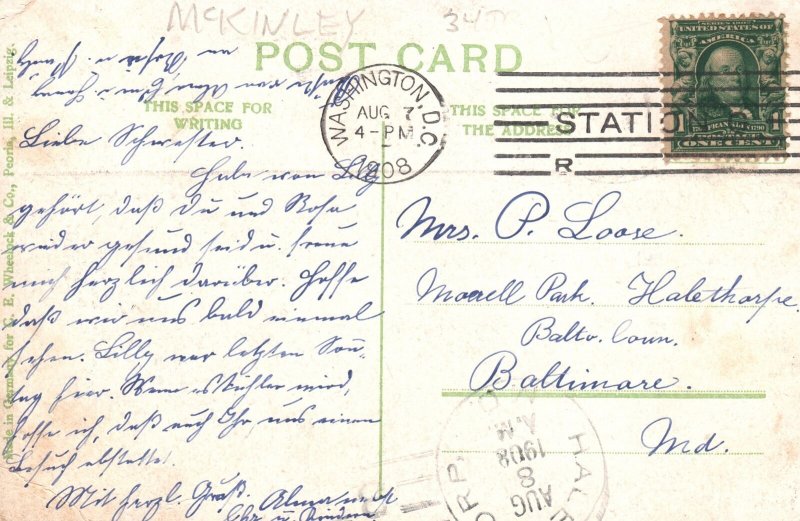 McKINLEY
POST CARD
THIS SPACE FOR
WRITING
THIS SPACE FOR
THE ADDRESS
WASHINGTON, D.C.
AUG 7
4-PM
1908
STATION
R
SERIES 1902
UNITED STATES OF
AMERICA
1
ONE CENT
Liebe Schwester.
Habe von Lilly
gehört, daß du und Rosa
wieder gesund seid u. freue
mich herzlich darüber. Hoffe
daß wir uns bald einmal
sehen. Lilly war letzten Son,
tag hier. Wenn es kühler wird,
hoffe ich, daß auch Ihr uns einen
Besuch abstattet.
Mit herzl. Gruß. Alma nebst
u. Kindern.
Mrs. P. Loose.
Morrell Park. Halethorpe,
Balto. Coun.
Baltimore.
Md.
AUG
8
1908
A.M.
Made in Germany for E. Wheelock & Co., Peoria, Ill. & Leipzig.